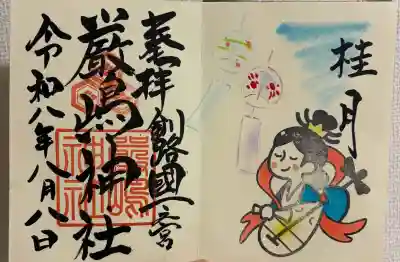 桂月
奉拝
釧路國一之宮
厳嶋神社
令和八年八月八日
厳嶋神社